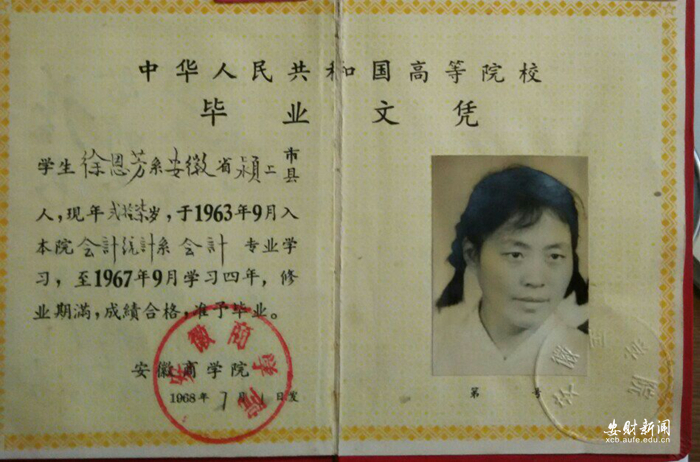 中华人民共和国高等院校
毕业文凭
学生徐恩芳系安徽省颍上市县
人，现年贰拾柒岁，于1963年9月入
本院会計統計系会計专业学
习，至1967年9月学习四年，修
业期滿，成績合格，准予毕业。
安徽商学院
1968年7月1日发
第 号
安徽商学院
安财新闻
xcb.aufe.edu.cn